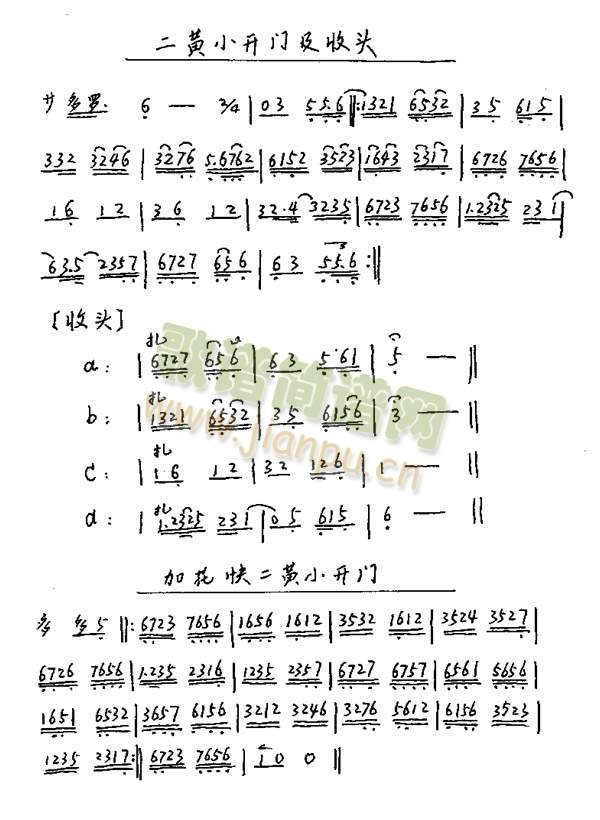 二黄小开门及收头
サ 多罗. 6 — 3/4 | 0 3 5 5.6 ‖: 1321 6532 | 3 5 6 1 5 |
332 3246 | 3276 5.6762 | 6152 3523 | 1643 2317 | 6726 7656 |
1 6 1 2 | 3 6 1 2 | 32.4 3235 | 6723 7656 | 1.2325 2 3 1 |
63.5 2357 | 6727 656 | 6 3 55.6 :‖
[收头]
a: | 扎 6727 656 | 6 3 5.61 | 5 — ‖
b: | 扎 1321 6532 | 3 5 6156 | 3 — ‖
c: | 扎 1.6 1 2 | 3 2 1 2 6 | 1 — ‖
d: | 扎 1.2325 231 | 0 5 615 | 6 — ‖
加花快二黄小开门
多 多 5 ‖: 6723 7656 | 1656 1612 | 3532 1612 | 3524 3527 |
6726 7656 | 1.235 2316 | 1235 2357 | 6727 6757 | 6561 5656 |
1651 6532 | 3657 6156 | 3212 3246 | 3276 5612 | 6156 3523 |
1235 2317 :‖ 6723 7656 | 1 0 0 ‖
歌谱简谱网
www.jianpu.cn